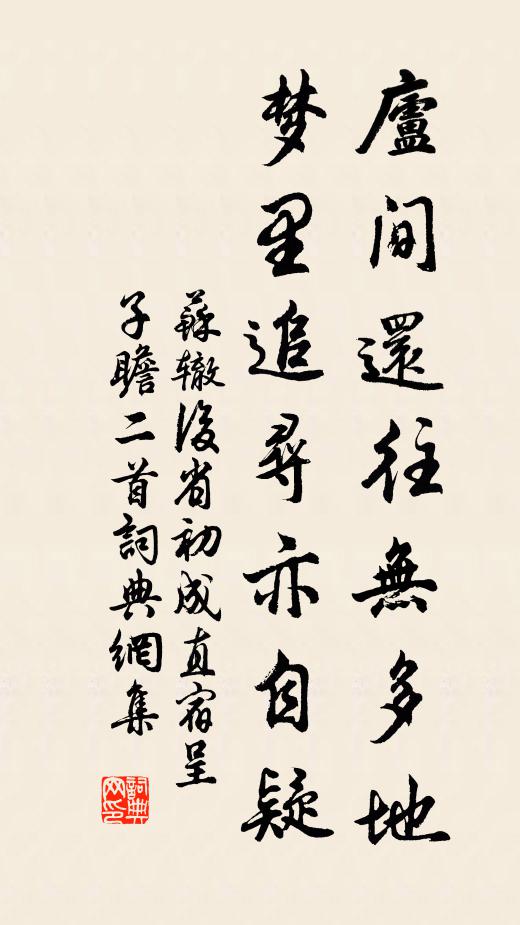 廬間還往無多地
梦里追尋亦自疑
蘇辙後省初成直宿呈
子瞻二首詞典網集
詞典
网印